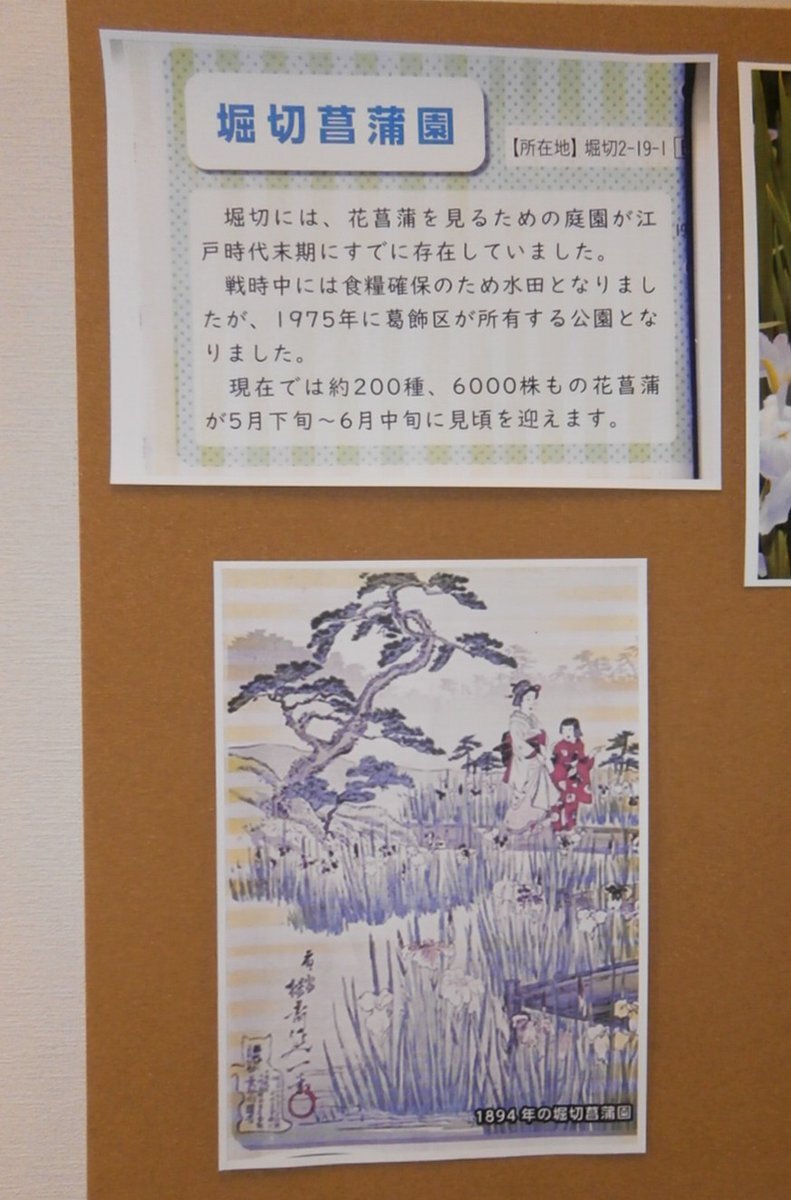 堀切菖蒲園
【所在地】堀切2-19-1
堀切には、花菖蒲を見るための庭園が江
戸時代末期にすでに存在していました。
戦時中には食糧確保のため水田となりまし
たが、1975年に葛飾区が所有する公園とな
りました。
現在では約200種、6000株もの花菖蒲
が5月下旬～6月中旬に見頃を迎えます。
1894年の堀切菖蒲園